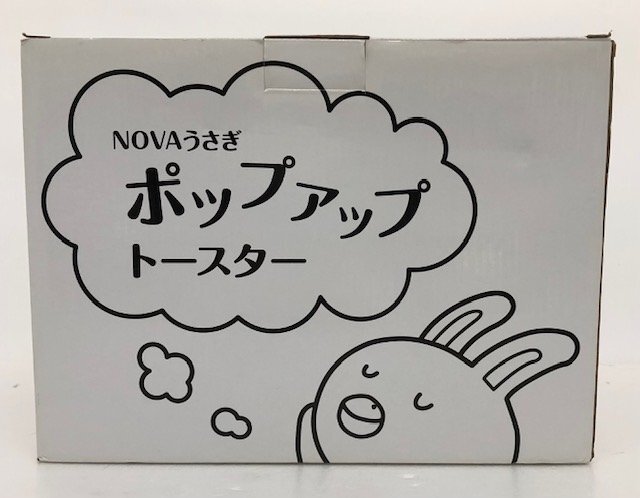 NOVAうさぎ
ポップアップ
トースター